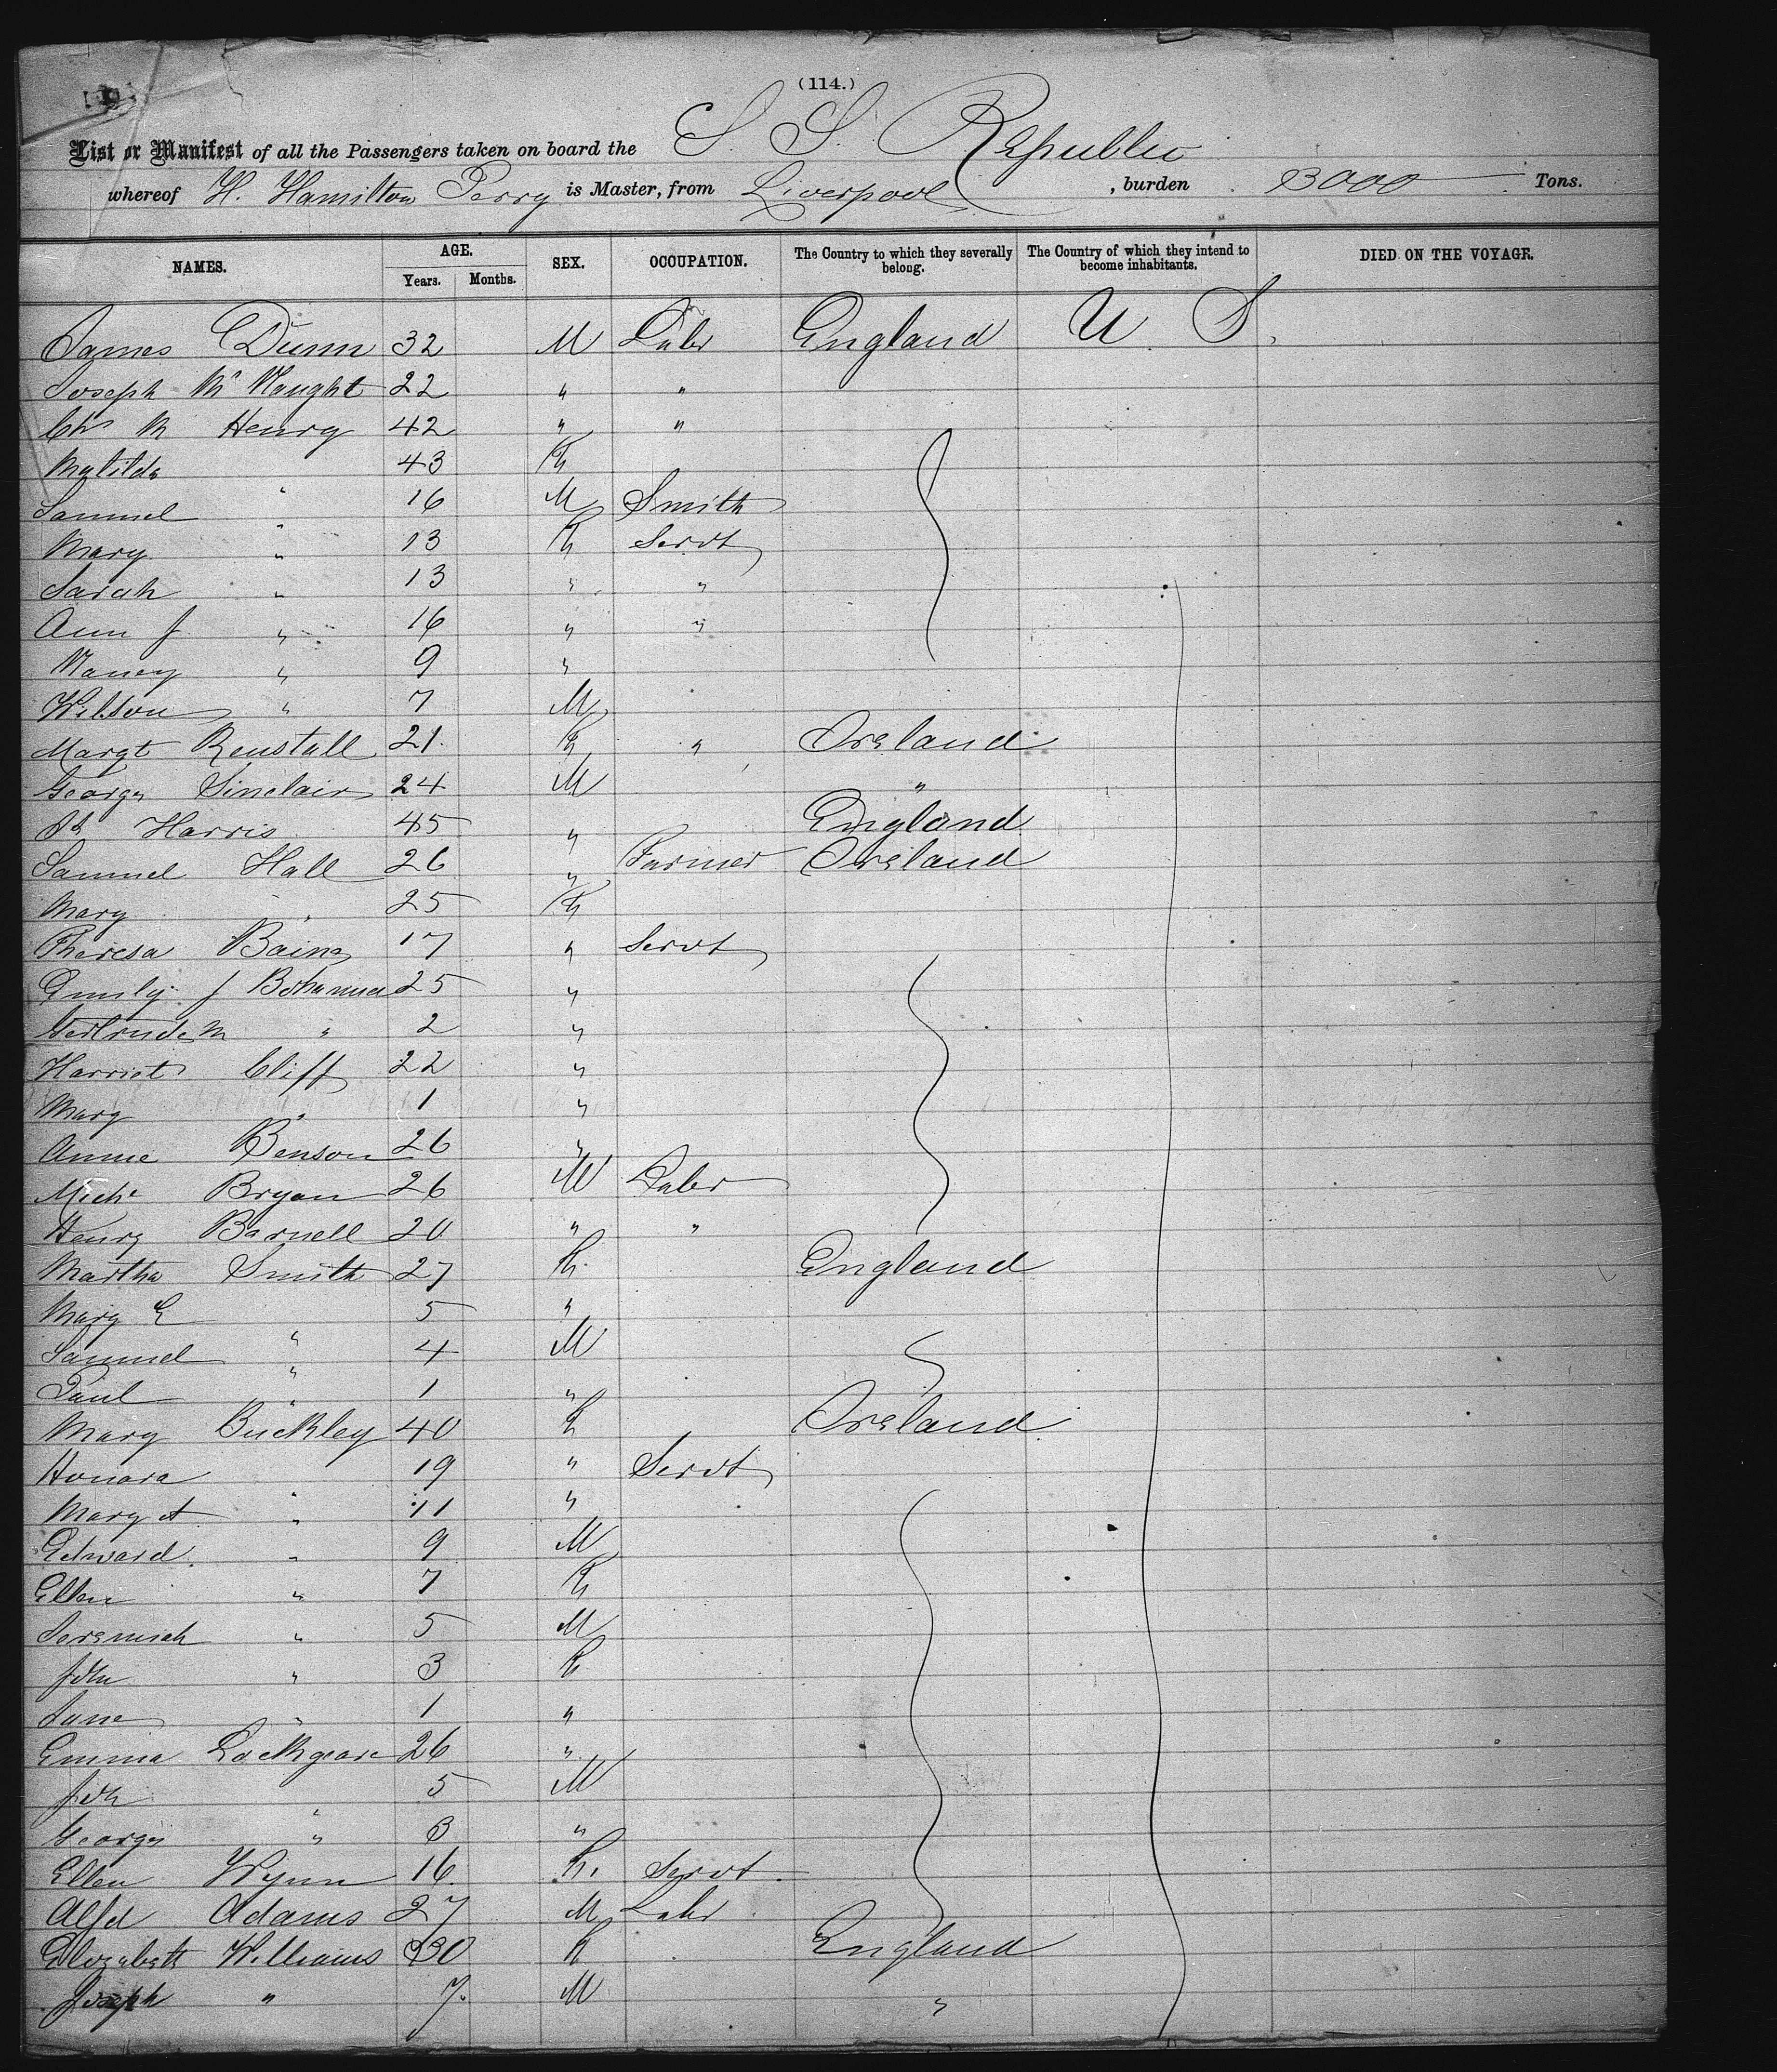 (114.)
List or Manifest of all the Passengers taken on board the S. S. Republic
whereof H. Hamilton Perry is Master, from Liverpool, burden 3000 Tons.
NAMES. AGE. Years. Months. SEX. OCCUPATION. The Country to which they severally belong. The Country of which they intend to become inhabitants. DIED ON THE VOYAGE.
James Dunn 32 M Labr England U. S.
Joseph Mc Naught 22 " "
Chs M Henry 42 " "
Matilda " 43 F
Samuel " 16 M Smith
Mary " 13 F Servt
Sarah " 13 " "
Ann J " 16 " "
Nancy " 9 "
Wilson " 7 M
Margt Renstall 21 F " Ireland
George Sinclair 24 M "
Harris 45 " England
Samuel Hall 26 " Farmer Ireland
Mary " 25 F
Theresa Baine 17 " Servt
Emily J Bohanna 25 "
Gertrude M " 2 "
Harriet Cliff 22 "
Mary " 1 "
Annie Benson 26 "
Michl Bryan 26 M Labr
Henry Barnell 20 " "
Martha Smith 27 F England
Mary E " 5 "
Samuel " 4 M
Paul " 1 "
Mary Buckley 40 F Ireland
Honora " 19 " Servt
Mary A " 11 "
Edward " 9 M
Ellen " 7 F
Jeremiah " 5 M
John " 3 F
Jane " 1 "
Emma Lockgeare 26 "
Joh " 5 M
George " 3 "
Ellen Wynn 16 F. Servt
Alfd Adams 27 M Labr
Elizabeth Williams 30 F England
Joseph " 7 M "